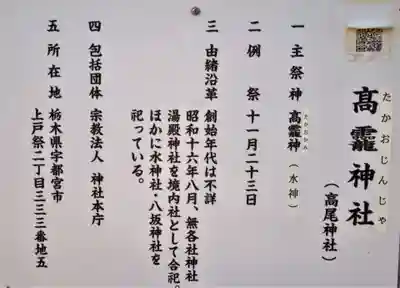 たかおじんじゃ
髙龗神社
(高尾神社)
一 主祭神 高龗神(水神)
たかおかみ
二 例祭 十一月二十三日
三 由緒沿革 創始年代は不詳
昭和十六年八月、無各社神社
湯殿神社を境内社として合祀。
ほかに水神社・八坂神社を
祀っている。
四 包括団体 宗教法人 神社本庁
五 所在地 栃木県宇都宮市
上戸祭二丁目三三三番地五